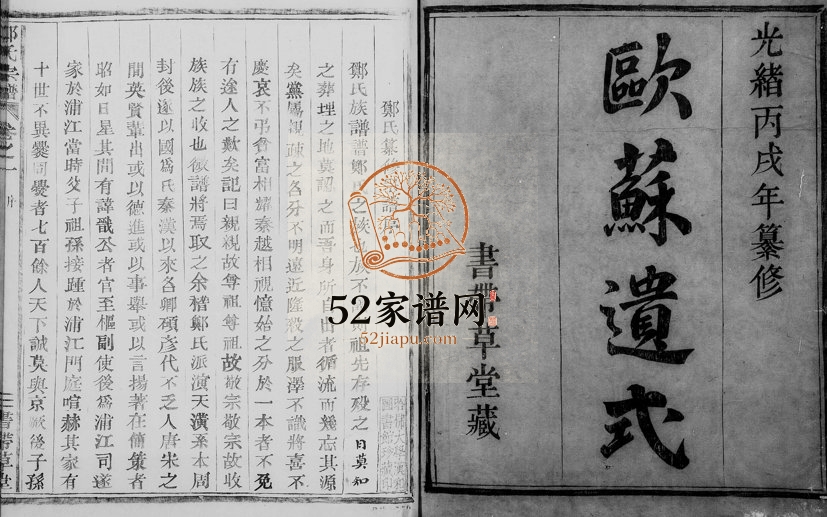 光緒丙戌年纂修
歐蘇遺式
書帶草堂藏
52家谱网
52jiapu.com
鄭氏纂修
鄭氏族譜譜鄭氏之族也族不 則祖先存殁之日莫知
之葬埋之地莫 之而吾身所自出者循流而幾忘其源
矣黨屬親疎之名分不明遠近隆殺之服澤不識將喜不
慶哀不弔貧富相耀秦越相視憶始之分於一本者不免
有途人之歎矣記曰親親故尊祖尊祖故敬宗敬宗故收
族族之收也微譜將焉取之余稽鄭氏派演天潢系本周
封後遂以國為氏秦漢以來名卿碩彥代不乏人唐宋之
間英賢輩出或以德進或以事舉或以言揚著在簡策者
昭如日星其間有諱 公者官至樞副使後為浦江司遂
家於浦江當時父子祖孫接踵於浦江門庭喧赫其家有
十世不異爨同爨者七百餘人天下誠莫與京厥後子孫
鄭氏宗譜 卷之一
書帶草堂